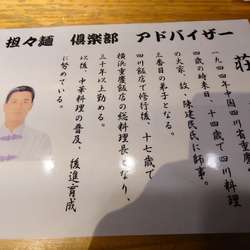 担々麺 倶楽部 アドバイザー
荘
一九四四年中国四川省重慶
四歳の時来日、十四歳で四川料理
の大家、故、陳建民氏に師事。
三番目の弟子となる。
四川飯店で修行後、十七歳で
横浜重慶飯店の総料理長となり、
三十年以上勤める。
以後、中華料理の普及、後進育成
に努めている。